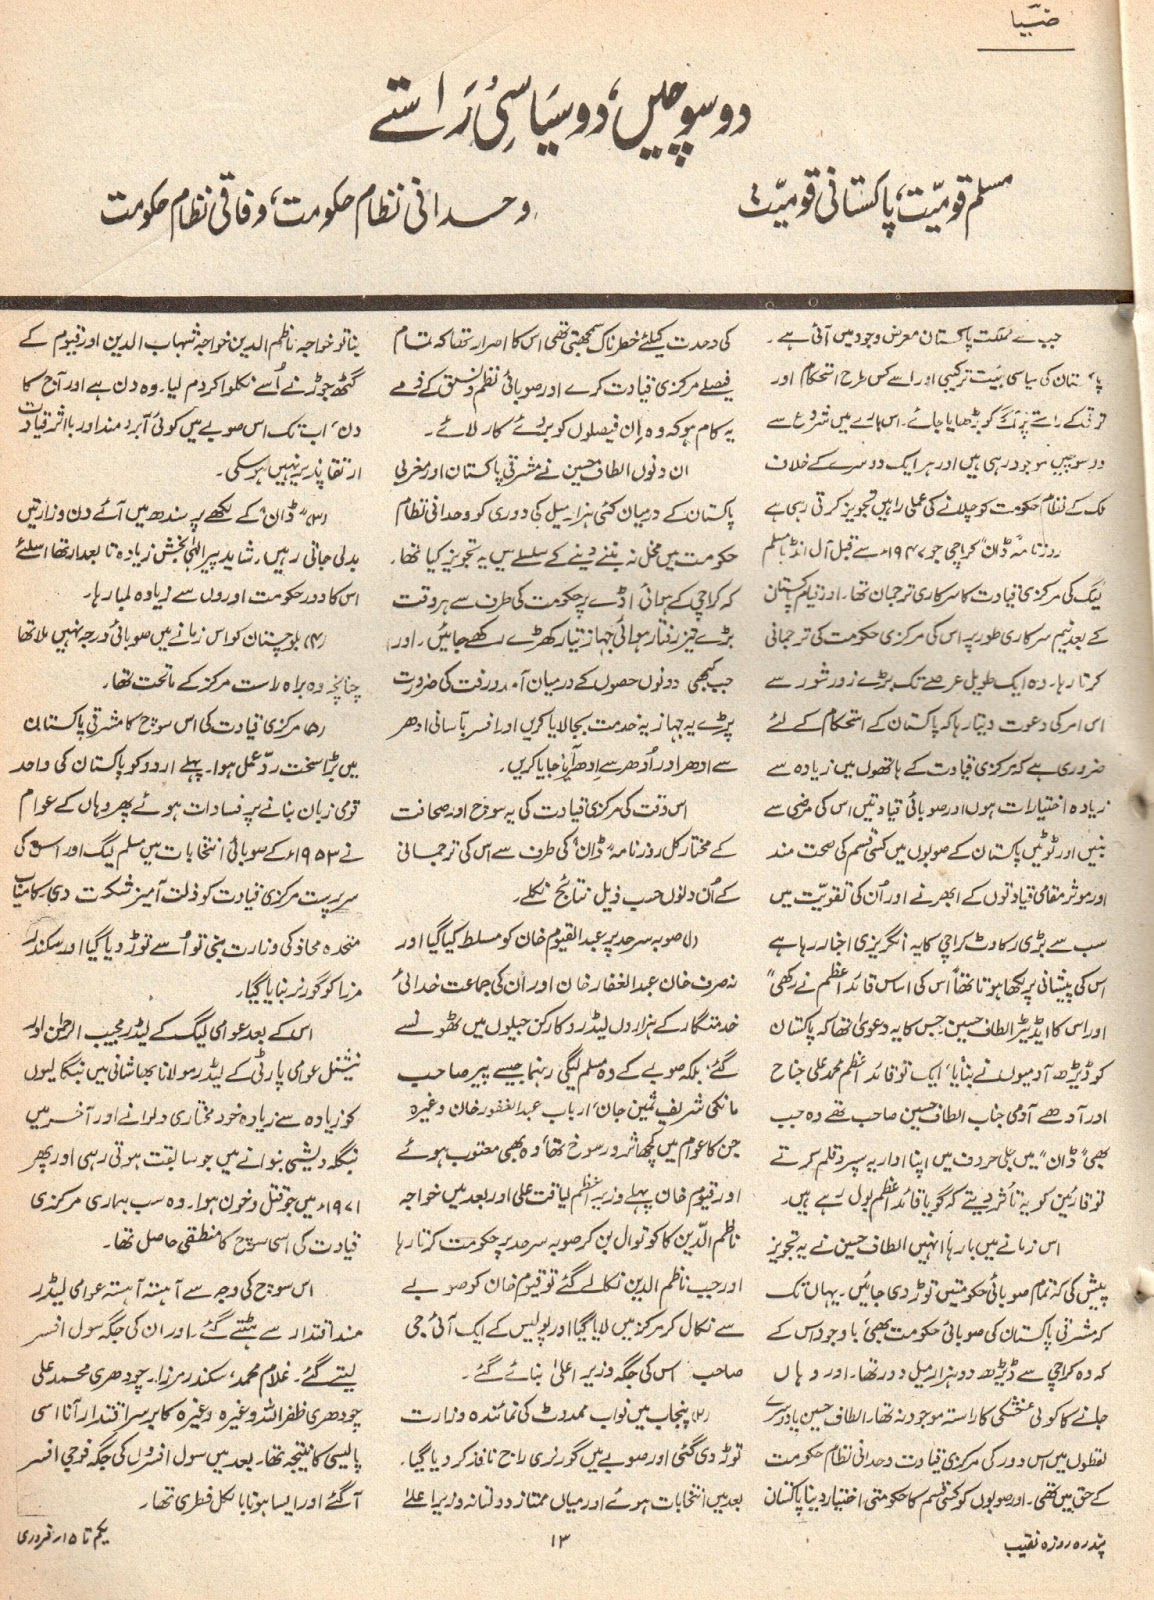 ضیا
دو سوچیں، دو سیاسی راستے
مسلم قومیّت، پاکستانی قومیّت
وحدانی نظام حکومت، وفاقی نظام حکومت
جب سے مملکت پاکستان معرض وجود میں آئی ہے۔
پاکستان کی سیاسی ہیئت ترکیبی اور اسے کس طرح استحکام اور
ترقی کے راستے پر آگے کو بڑھایا جائے۔ اس بارے میں شروع سے
دو سوچیں موجود رہی ہیں اور ہر ایک دوسرے کے خلاف
ملک کے نظام حکومت کو چلانے کی عملی راہیں تجویز کرتی رہی ہے
روزنامہ "ڈان" کراچی جو ۱۹۴۷ء سے قبل آل انڈیا مسلم
لیگ کی مرکزی قیادت کا سرکاری ترجمان تھا۔ اور قیام پاکستان
کے بعد نیم سرکاری طور پر اس کی مرکزی حکومت کی ترجمانی
کرتا رہا۔ وہ ایک طویل عرصے تک بڑے زور شور سے
اس امر کی دعوت دیتا رہا کہ پاکستان کے استحکام کے لئے
ضروری ہے کہ مرکزی قیادت کے ہاتھوں میں زیادہ سے
زیادہ اختیارات ہوں اور صوبائی قیادتیں اس کی مرضی سے
بنیں اور ٹوٹیں پاکستان کے صوبوں میں کسی قسم کی صحت مند
اور موثر مقامی قیادتوں کے ابھرنے اور اُن کی تقویّت میں
سب سے بڑی رکاوٹ کراچی کا یہ انگریزی اخبار رہا ہے
اس کی پیشانی پر لکھا ہوتا تھا "اس کی اساس قائد اعظم نے رکھی"
اور اس کا ایڈیٹر الطاف حسین، جس کا یہ دعویٰ تھا کہ پاکستان
کو ڈیڑھ آدمیوں نے بنایا، ایک تو قائد اعظم محمد علی جناح
اور آدھے آدمی جناب الطاف حسین صاحب تھے وہ جب
بھی "ڈان" میں جلی حروف میں اپنا اداریہ سپرد قلم کرتے
تو قارئین کو یہ تأثر دیتے کہ گویا قائد اعظم بول رہے ہیں۔
اس زمانے میں بارہا انہیں الطاف حسین نے یہ تجویز
پیش کی کہ تمام صوبائی حکومتیں توڑ دی جائیں۔ یہاں تک
کہ مشرقی پاکستان کی صوبائی حکومت بھی، باوجود اس کے
کہ وہ کراچی سے ڈیڑھ دو ہزار میل دور تھا۔ اور وہاں
جانے کا کوئی خشکی کا راستہ موجود نہ تھا۔ الطاف حسین یا دوسرے
لفظوں میں اس دور کی مرکزی قیادت وحدانی نظام حکومت
کے حق میں تھی۔ اور صوبوں کو کسی قسم کا حکومتی اختیار دینا پاکستان
کی وحدت کیلئے خطرناک سمجھتی تھی اس کا اصرار تھا کہ تمام
فیصلے مرکزی قیادت کرے اور صوبائی نظم و نسق کے ذمے
یہ کام ہو کہ وہ ان فیصلوں کو بروئے کار لائے۔
ان دنوں الطاف حسین نے مشرقی پاکستان اور مغربی
پاکستان کے درمیان کئی ہزار میل کی دوری کو وحدانی نظام
حکومت میں مخل نہ بننے دینے کے سلسلے میں یہ تجویز کیا تھا۔
کہ کراچی کے ہوائی اڈے پر حکومت کی طرف سے ہر وقت
بڑے تیز رفتار ہوائی جہاز تیار کھڑے رکھے جائیں۔ اور
جب کبھی دونوں حصوں کے درمیان آمدورفت کی ضرورت
پڑے یہ جہاز یہ خدمت بجا لایا کریں اور افسر بآسانی ادھر
سے ادھر اور اُدھر سے ادھر آیا جایا کریں۔
اس وقت کی مرکزی قیادت کی یہ سوچ اور صحافت
کے مختار کل روزنامہ "ڈان" کی طرف سے اس کی ترجمانی
کے اُن دنوں حسب ذیل نتائج نکلے۔
(۱) صوبہ سرحد پر عبدالقیوم خان کو مسلط کیا گیا اور
نہ صرف خان عبدالغفار خان اور ان کی جماعت خدائی
خدمتگار کے ہزاروں لیڈر و کارکن جیلوں میں ٹھونسے
گئے، بلکہ صوبے کے وہ مسلم لیگی رہنما جیسے پیر صاحب
مانکی شریف، ثمین جان، ارباب عبدالغفور خان وغیرہ
جن کا عوام میں کچھ اثر و رسوخ تھا، وہ بھی معتوب ہوئے
اور قیوم خان پہلے وزیر اعظم لیاقت علی اور بعد میں خواجہ
ناظم الدّین کا کوتوال بن کر صوبہ سرحد پر حکومت کرتا رہا
اور جب ناظم الدین نکالے گئے تو قیوم خان کو صوبے
سے نکال کر مرکز میں لایا گیا اور پولیس کے ایک آئی جی
صاحب اس کی جگہ وزیر اعلیٰ بنائے گئے۔
(۲) پنجاب میں نواب ممدوٹ کی نمائندہ وزارت
توڑ دی گئی اور صوبے میں گورنری راج نافذ کر دیا گیا۔
بعد میں انتخابات ہوئے اور میاں ممتاز دولتانہ وزیر اعلےٰ
بنا تو خواجہ ناظم الدین خواجہ شہاب الدین اور قیوم کے
گٹھ جوڑ نے اُسے نکلوا کر دم لیا۔ وہ دن ہے اور آج کا
دن، اب تک اس صوبے میں کوئی آبرومند اور بااثر قیادت
ارتقا پذیر نہیں ہو سکی۔
(۳) "ڈان" کے لکھے پر سندھ میں آئے دن وزارتیں
بدلی جاتی رہیں۔ شاید پیر الٰہی بخش زیادہ تابعدار تھا اسلئے
اس کا دور حکومت اوروں سے زیادہ لمبا رہا۔
(۴) بلوچستان کو اس زمانے میں صوبائی درجہ نہیں ملا تھا
چنانچہ وہ براہ راست مرکز کے ماتحت تھا۔
(۵) مرکزی قیادت کی اس سوچ کا مشرقی پاکستان
میں بڑا سخت ردّ عمل ہوا۔ پہلے اردو کو پاکستان کی واحد
قومی زبان بنانے پر فسادات ہوئے پھر وہاں کے عوام
نے ۱۹۵۳ء کے صوبائی انتخابات میں مسلم لیگ اور اس کی
سرپرست مرکزی قیادت کو ذلت آمیز شکست دی۔ کامیاب
متحدہ محاذ کی وزارت بنی تو اُسے توڑ دیا گیا اور سکندر
مرزا کو گورنر بنایا گیا۔
اس کے بعد عوامی لیگ کے لیڈر مجیب الرحمٰن اور
نیشنل عوامی پارٹی کے لیڈر مولانا بھاشانی میں بنگالیوں
کو زیادہ سے زیادہ خود مختاری دلوانے اور آخر میں
بنگلہ دیش بنوانے میں جو سابقت ہوتی رہی اور پھر
۱۹۷۱ء میں جو قتل و خون ہوا۔ وہ سب ہماری مرکزی
قیادت کی اسی سوچ کا منطقی حاصل تھا۔
اس سوچ کی وجہ سے آہستہ آہستہ عوامی لیڈر
مسند اقتدار سے ہٹتے گئے۔ اور ان کی جگہ سول افسر
لیتے گئے۔ غلام محمد، سکندر مرزا۔ چودھری محمد علی
چودھری ظفر اللہ وغیرہ وغیرہ کا برسر اقتدار آنا اسی
پالیسی کا نتیجہ تھا۔ بعد میں سول افسروں کی جگہ فوجی افسر
آ گئے اور ایسا ہونا بالکل فطری تھا۔
پندرہ روزہ نقیب
۱۳
یکم تا ۱۵؍ فروری